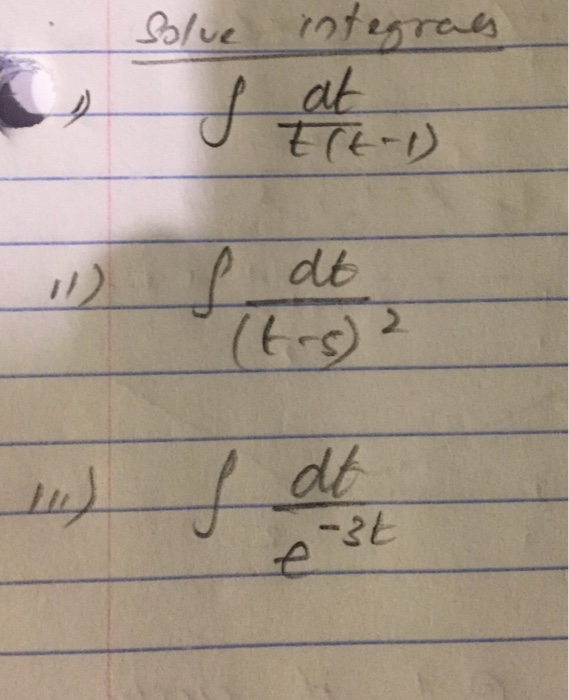 Solve integrals
1) ∫ dt / t(t-1)
11) ∫ dt / (t-5)²
111) ∫ dt / e^{-3t}